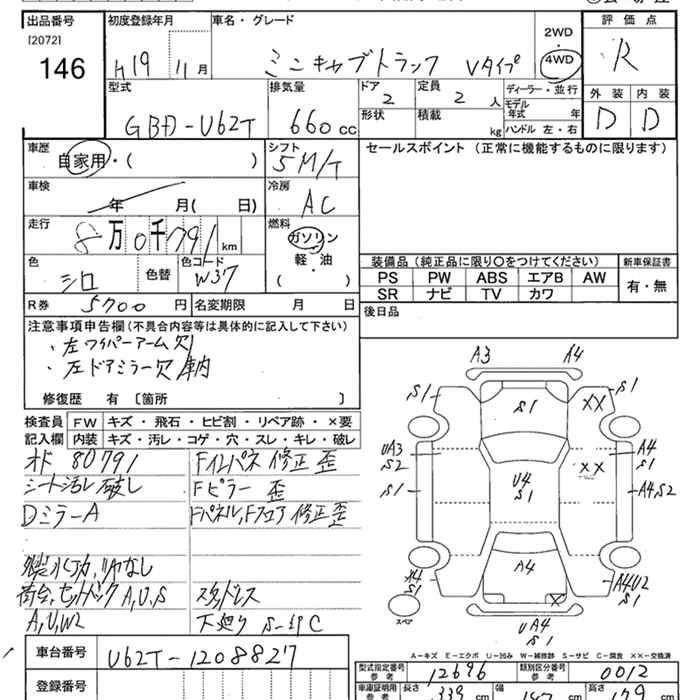 出品番号 初度登録年月 車名・グレード 2WD 評価点
[2072]
146 H19 11月 ミニキャブトラック Vタイプ 4WD R
型式 排気量 ドア 定員 ディーラー・並行 外装 内装
2 2人 モデル年式 年
GBD-U62T 660cc 形状 積載 kg ハンドル 左・右 D D
車歴 シフト セールスポイント (正常に機能するものに限ります)
自家用・( ) 5M/T
車検 冷房
年 月( 日) AC
走行 燃料
8万0千791km ガソリン
軽・油
色 色替 色コード ( )
シロ W37
装備品 (純正品に限り〇をつけてください) 新車保証書
PS PW ABS エアB AW 有・無
SR ナビ TV カワ
R券 5700円 名変期限 月 日 後日品
注意事項申告欄(不具合内容等は具体的に記入して下さい)
・左ワイパーアーム欠
・左ドアミラー欠 車内
修復歴 有〔箇所 〕
検査員 FW キズ・飛石・ヒビ割・リペア跡・×要
記入欄 内装 キズ・汚レ・コゲ・穴・スレ・キレ・破レ
オド 80791 Fインパネ修正歪
シート汚レ破レ Fピラー歪
DミラーA Fパネル,Fフェア修正歪
荷台,セットバックA,U,S スタッドレス
A,U,W2 下廻り S-ドC
A3 A4
S1 S1 XX S1
UA3 S2 A4 S1
S1 U4 S1 XX A4,S2
X4 S1 A4 X A4U2 S1
スペア UA4 S1
A-キズ E-エクボ U-凹み W-補修跡 S-サビ C-腐食 XX-交換済
車台番号 U62T-1208827
登録番号
型式指定番号 参考 12696 類別区分番号 参考 0012
車庫証明用 参考 長さ 339cm 幅 147cm 高さ 179cm